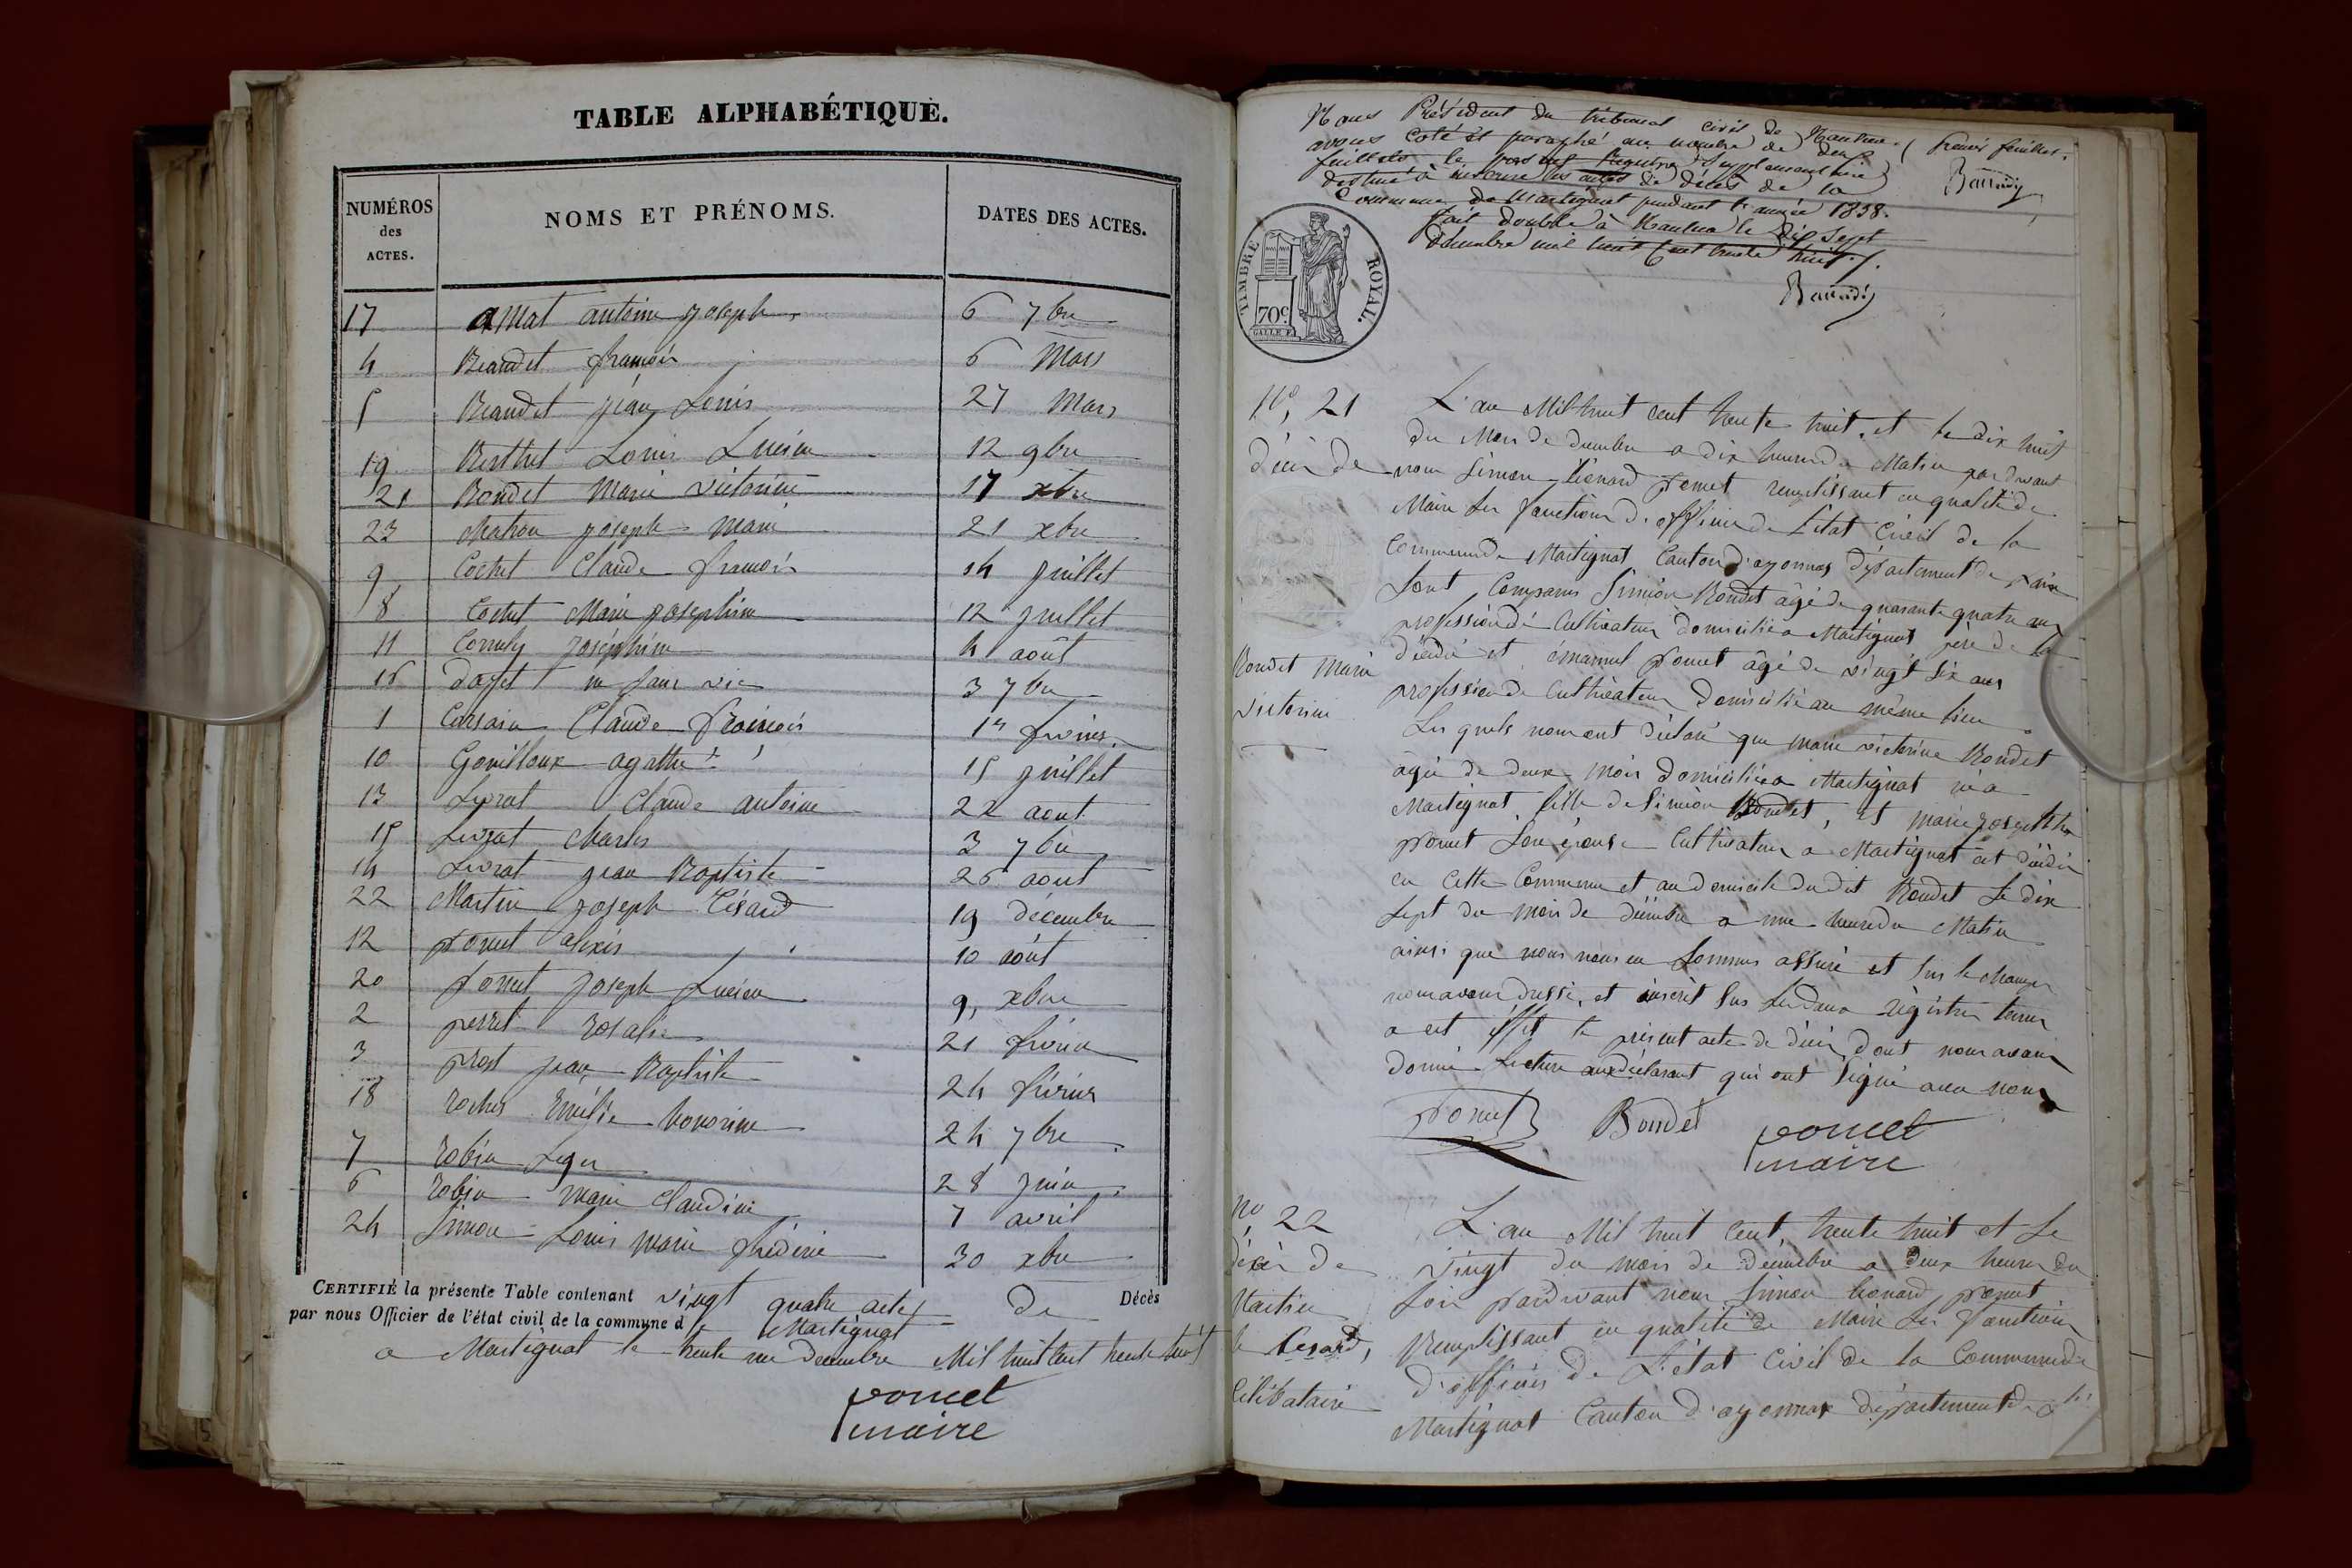 TABLE ALPHABÉTIQUE.
NUMÉROS des ACTES. NOMS ET PRÉNOMS. DATES DES ACTES.
17 amat antoine joseph 6 7bre
4 Beaudet françois 6 Mars
5 Beaudet jean Louis 27 Mars
19 Berthet Louis Lucien 12 9bre
21 Bondet Marie victorine 17 xbre
23 joseph Marie 21 xbre
9 Cochet Claude françois 14 juillet
8 Cochet Marie josephine 12 juillet
11 josephine 4 août
16 sans vie 3 7bre
1 Claude françois
10 Gouilloux agathe 15 juillet
13 Livrat Claude antoine 22 aout
15 Livrat Charles 3 7bre
14 Livrat jean Baptiste 26 aout
22 Martin joseph Césard 19 décembre
12 poncet alexis 10 août
20 poncet joseph Lucien 9, xbre
2 perret rosalie 21 février
3 prost jean Baptiste 24 février
18 rochet Emélie honorine 24 7bre
7 robin Leger 28 juin
6 robin Marie Claudine 7 avril
24 Simon Louis Marie fréderic 30 xbre
CERTIFIÉ la présente Table contenant vingt quatre actes de Décès
par nous Officier de l'état civil de la commune d Martignat
a Martignat le trente un decembre Mil huit cent trente huit
poncet
maire
Nous Président du tribunal civil de Nantua
avons coté et paraphé au nombre de deux
feuillets le présent Registre supplémentaire
destiné à inscrire les actes de décès de la
Commune de Martignat pendant l'année 1838.
fait double à Nantua le dix sept
décembre mil huit cent trente huit /.
Premier feuillet.
TIMBRE ROYAL.
70c.
N°, 21
décès de
Bondet Marie
victorine
L'an Mil huit cent trente huit, et le dix huit
du Mois de decembre a dix heures du Matin pardevant
nous Simon Léonard poncet remplissant en qualité de
Maire les fonctions d'officier de L'état Civil de la
Commune de Martignat Canton d'oyonnax département de l'ain
Sont Comparus Siméon Bondet âgé de quarante quatre ans
profession de Cultivateur domicilié a Martignat père de la
décédée et émanuel poncet âgé de vingt six ans
profession de Cultivateur Domicilié au même lieu
Les quels nous ont déclaré que Marie victorine Bondet
âgée de deux mois domiciliée a Martignat née a
Martignat fille de Siméon Bondet, et Marie
poncet Son épouse Cultivateur a Martignat est décédée
en Cette Commune et au domicile dudit Bondet Le dix
Sept du mois de décembre a une heure du Matin
ainsi que nous nous en Sommes assuré et sur le champ
nous avons dressé, et inscrit sur Les deux régistres tenus
a cet effet le présent acte de décès, dont nous avons
donné Lecture aux déclarant qui ont Signé avec nous
Poncet Bondet poncet
maire
n° 22
décès de
Martin
Cesard,
Célibataire
L'an Mil huit Cent, trente huit et Le
vingt du mois de decembre a deux heures du
Soir pardevant nous Simon Léonard poncet
Remplissant en qualité de Maire Les fonctions
d'officier de L'état Civil de la Commune de
Martignat Canton d'oyonnax département de